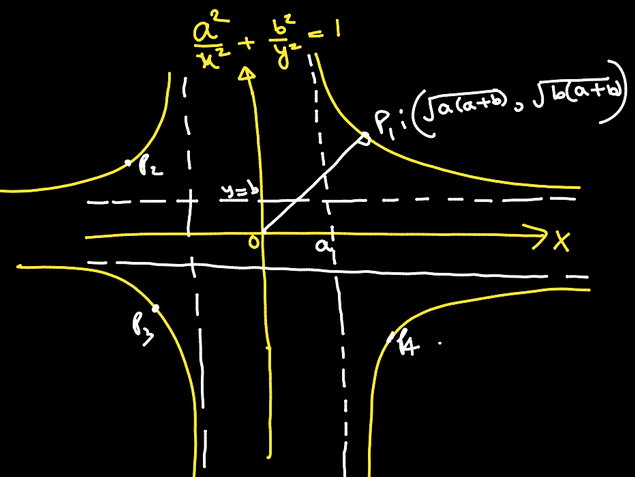 a²/x² + b²/y² = 1
P₁ : (√a(a+b), √b(a+b))
P₂
y=b
O
a
X
P₃
P₄